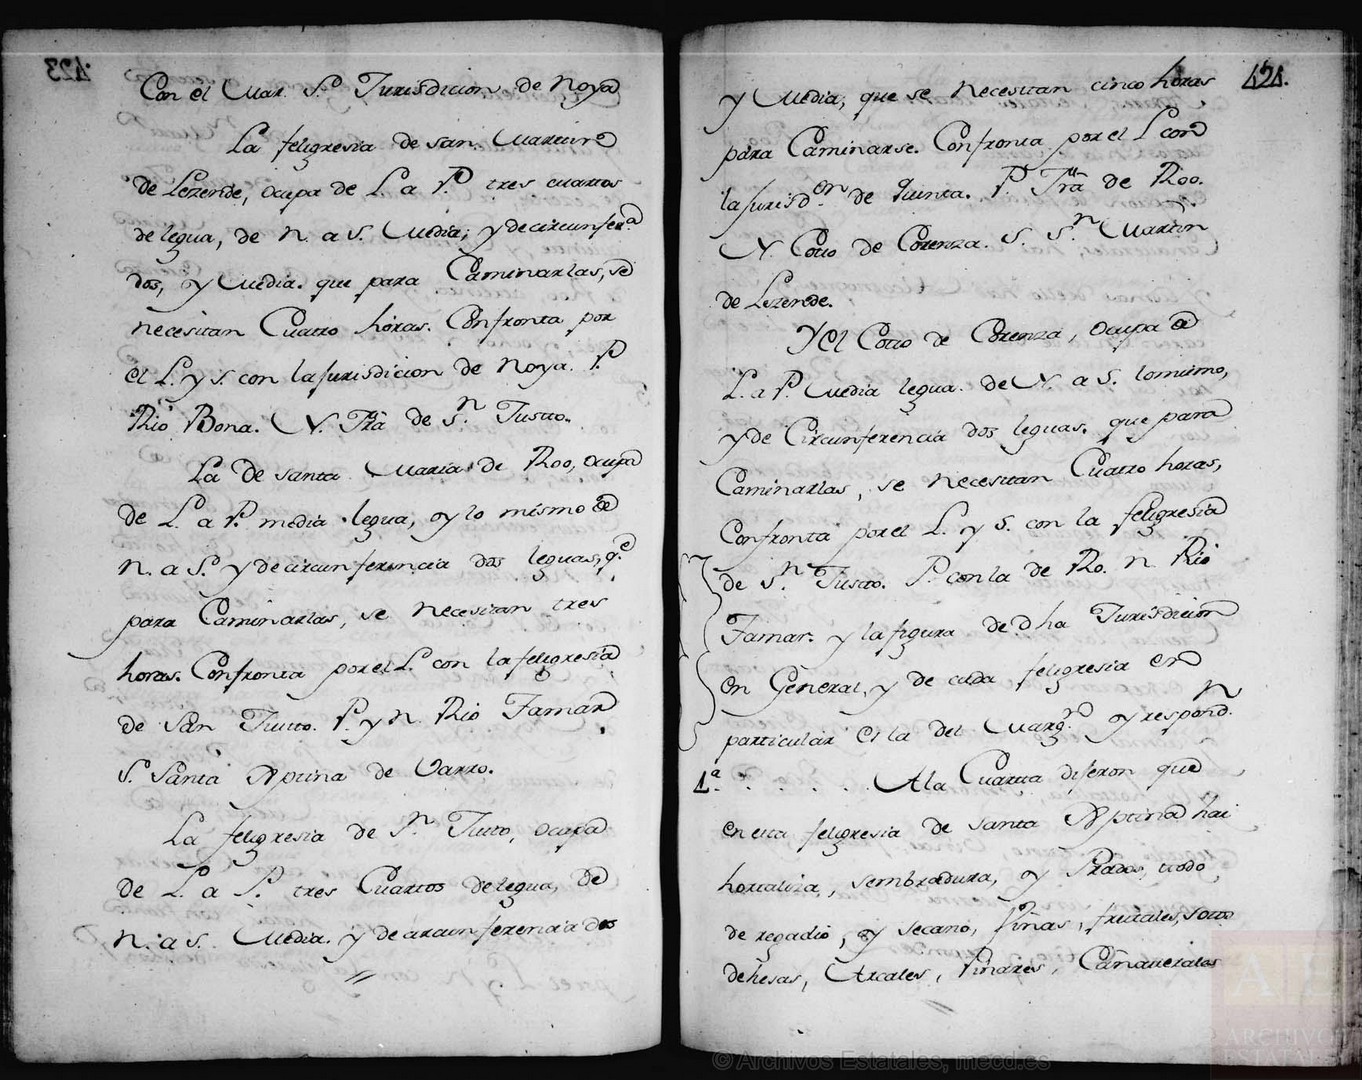 423
Con el Mar. S.º Jurisdicion de Noya
La feligresia de san Martin
de Lezende, ocupa de L. a P. tres cuartos
de legua, de N. a S. Media, y de circunfer.ª
dos, y Media. que para Caminarlas, se
necesitan Cuatro horas. Confronta por
el L. y S. con la Jurisdicion de Noya. P.
Rio Bona. N. Frã de S.n Justo.
La de santa Maria de Roo, ocupa
de L. a P. media legua, y lo mismo de
N. a S. y de circunferencia dos leguas, q.e
para Caminarlas, se necesitan tres
horas. Confronta por el L. con la feligresia
de san Justo. P. y N. Rio Tamar
S. Santa de Barro.
La feligresia de S.n Justo, ocupa
de L. a P. tres Cuartos de legua, de
N. a S. Media. y de circunferencia dos
424.
y Media, que se necesitan cinco horas
para Caminarse. Confronta por el L. con
la Jurisd.on de Quinta. P. Frã de Roo.
N. Coto de Orenza. S. S.n Martin
de Lezende.
Y el Coto de Orenza, ocupa de
L. a P. Media legua. de N. a S. lo mismo,
y de Circunferencia dos leguas. que para
Caminarlas, se necesitan Cuatro horas,
Confronta por el L. y S. con la feligresia
de S.n Justo. P. con la de Ro. N. Rio
Tamar. y la figura de dha Jurisdicion
en General, y de cada feligresia en
particular es la del Marg.n y respond.n
4.ª A la Cuarta dijeron que
en esta feligresia de santa hai
hortaliza, sembradura, y Prados, todo
de regadio, y secano, Viñas, frutales, soto
dehesas, Pinares, Cañaverales
© Archivos Estatales, mecd.es
AE
ARCHIVOS
ESTATALES